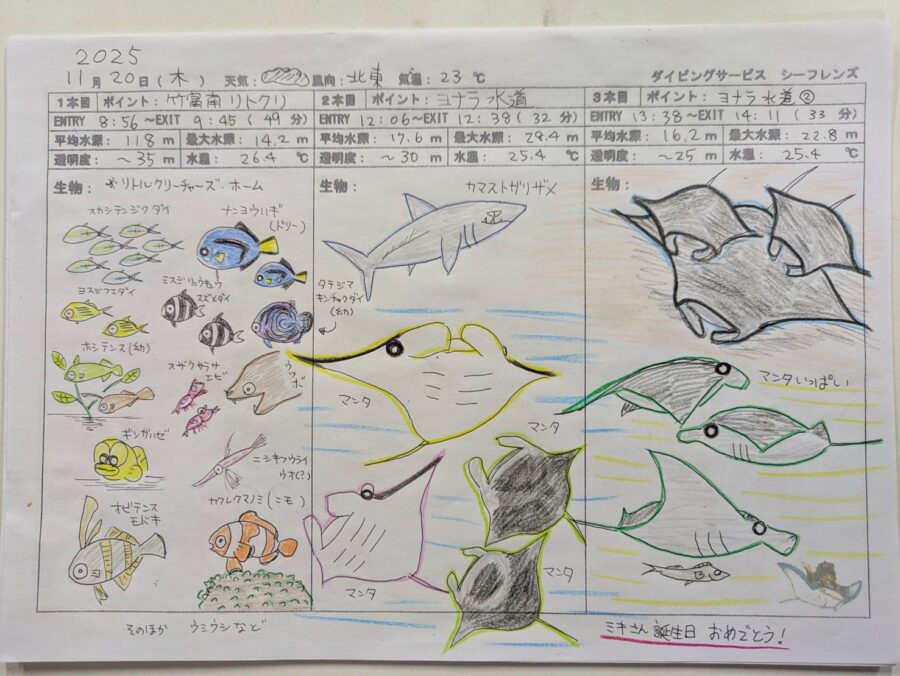 2025
11月 20日 (木) 天気: 風向: 北東 気温: 23 ℃ ダイビングサービス シーフレンズ
1本目 ポイント: 竹富南 リトクリ
ENTRY 8:56 ~EXIT 9:45 (49 分)
平均水深: 11.8 m 最大水深: 14.2 m
透明度: ~35 m 水温: 26.4 ℃
生物: リトルクリーチャーズ・ホーム
スカシテンジクダイ
ナンヨウハギ
(ドリー)
ヨスジフエダイ
ミスジリュウキュウ
スズメダイ
タテジマ
キンチャクダイ
(幼)
ホシテンス(幼)
スザクサラサ
エビ
ウツボ
ギンガハゼ
ニシキフウライ
ウオ(?)
オビテンス
モドキ
カクレクマノミ(ニモ)
そのほか ウミウシなど
2本目 ポイント: ヨナラ水道
ENTRY 12:06~EXIT 12:38 (32 分)
平均水深: 17.6 m 最大水深: 29.4 m
透明度: ~30 m 水温: 25.4 ℃
生物:
カマストガリザメ
マンタ
マンタ
マンタ
マンタ
3本目 ポイント: ヨナラ水道②
ENTRY 13:38~EXIT 14:11 (33 分)
平均水深: 16.2 m 最大水深: 22.8 m
透明度: ~25 m 水温: 25.4 ℃
生物:
マンタいっぱい
ミキさん誕生日 おめでとう!